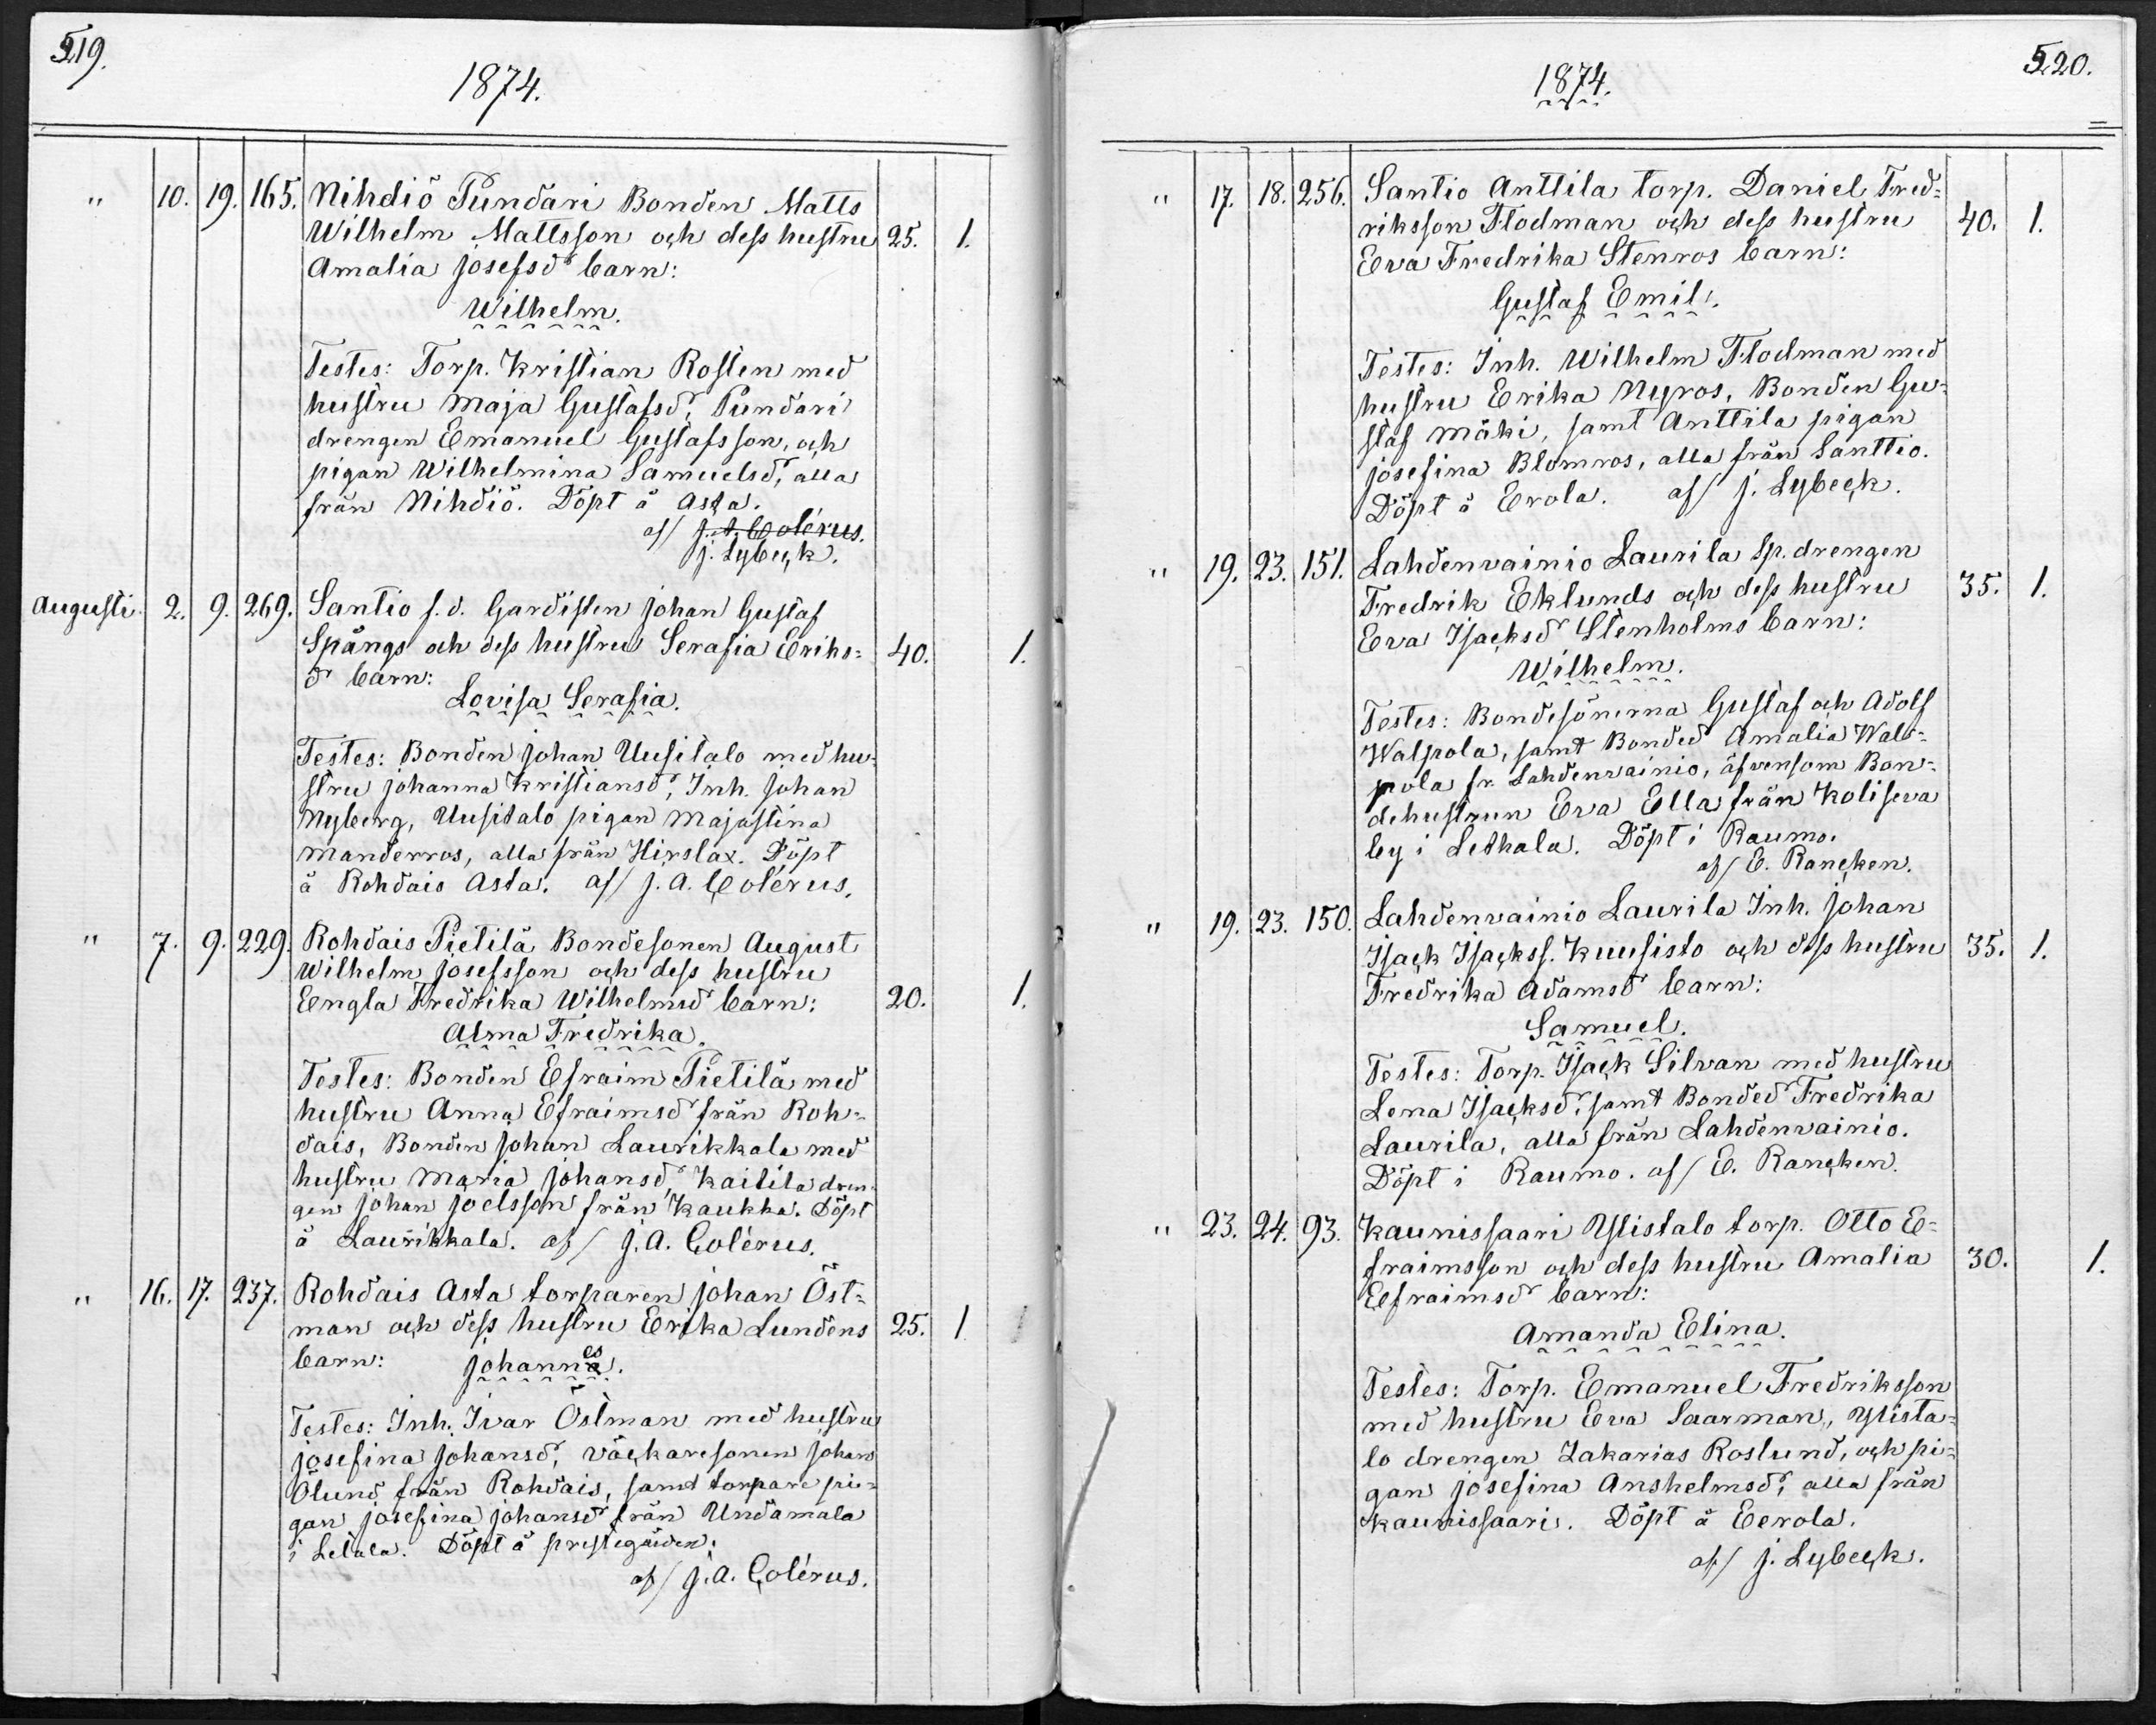 519.
1874.
" 10. 19. 165. Nihdiö Pundari Bonden Matts
Wilhelm Mattsson och dess hustru 25. 1.
Amalia Josefsdr barn:
Wilhelm.
Testes: Torp. Kristian Rosten med
hustru Maja Gustafsdr, Pundari
drengen Emanuel Gustafsson, och
pigan Wilhelmina Samuelsdr, alla
från Nihdiö. Döpt å Asta.
af/ J. A. Colérus.
J. Lybeck.
Augusti 2. 9. 269. Santio f.d. Gardisten Johan Gustaf
Spångs och dess hustru Serafia Eriks= 40. 1.
dr barn:
Lovisa Serafia.
Testes: Bonden Johan Uusitalo med hu=
stru Johanna Kristiansdr, Inh. Johan
Nyberg, Uusitalo pigan Majastina
Manderros, alla från Hirslax. Döpt
å Rohdais Asta. af/ J. A. Colérus.
" 7. 9. 229. Rohdais Pietilä Bondesonen August
Wilhelm Josefsson och dess hustru
Engla Fredrika Wilhelmsdr barn: 20. 1.
Alma Fredrika.
Testes: Bonden Efraim Pietilä med
hustru Anna Efraimsdr från Roh=
dais, Bonden Johan Laurikkala med
hustru Maria Johansdr, Kaitila dren=
gen Johan Joelsson från Kaukka. Döpt
å Laurikkala. af/ J. A. Colérus.
" 16. 17. 237. Rohdais Asta torparen Johan Öst=
man och dess hustru Erika Lundens 25. 1
barn: Johannes.
Testes: Inh. Ivar Östman med hustru
Josefina Johansdr, väckaresonen Johan
Ölund från Rohdais, samt torpare pi=
gan Josefina Johansdr från Undamala
i Letala. Döpt å prestegården.
af/ J. A. Colérus.
520.
1874.
" 17. 18. 256. Santio Anttila torp. Daniel Fred=
riksson Flodman och dess hustru 40. 1.
Eva Fredrika Stenros barn:
Gustaf Emil.
Testes: Inh. Wilhelm Flodman med
hustru Erika Nyros, Bonden Gu=
staf Mäki, samt Anttila pigan
Josefina Blomros, alla från Santtio.
Döpt å Erola. af/ J. Lybeck.
" 19. 23. 151. Lahdenvainio Laurila Sp. drengen
Fredrik Eklunds och dess hustru 35. 1.
Eva Isacksdr Stenholms barn:
Wilhelm.
Testes: Bondesönerna Gustaf och Adolf
Walpola, samt Bondedr Amalia Wal=
pola fr. Lahdenvainio, äfvensom Bon=
dehustrun Eva Ella från Koliseva
by i Lethala. Döpt i Raumo.
af/ E. Rancken.
" 19. 23. 150. Lahdenvainio Laurila Inh. Johan
Isack Isackss. Kuusisto och dess hustru 35. 1.
Fredrika Adamsdr barn:
Samuel.
Testes: Torp. Isack Silvan med hustru
Lena Isacksdr, samt Bondedr Fredrika
Laurila, alla från Lahdenvainio.
Döpt i Raumo. af/ E. Rancken.
" 23. 24. 93. Kaunissaari Ylistalo torp. Otto E=
fraimsson och dess hustru Amalia 30. 1.
Efraimsdr barn:
Amanda Elina.
Testes: Torp. Emanuel Fredriksson
med hustru Eva Saarman, Ylista=
lo drengen Zakarias Roslund, och pi=
gan Josefina Anshelmsdr, alla från
Kaunissaari. Döpt å Eerola.
af/ J. Lybeck.